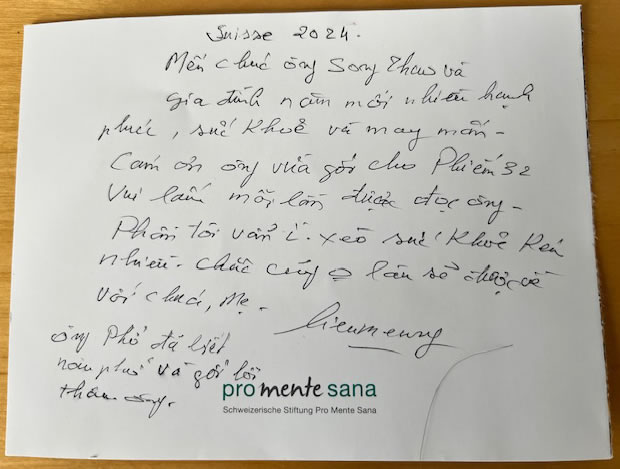 Suisse 2024.
Mến chúc ông Song Thao và
gia đình năm mới nhiều hạnh
phúc, sức khoẻ và may mắn -
Cám ơn ông vừa gởi cho Phiếm 32
Vui lắm mỗi lần được đọc ông -
Phần tôi vẫn ì. xèo sức khoẻ kém
nhiều - chắc cũng lần sẽ được về
với chúa, Mẹ.
Ông Phổ đã liệt
và gởi lời
thăm ông.
pro mente sana
Schweizerische Stiftung Pro Mente Sana